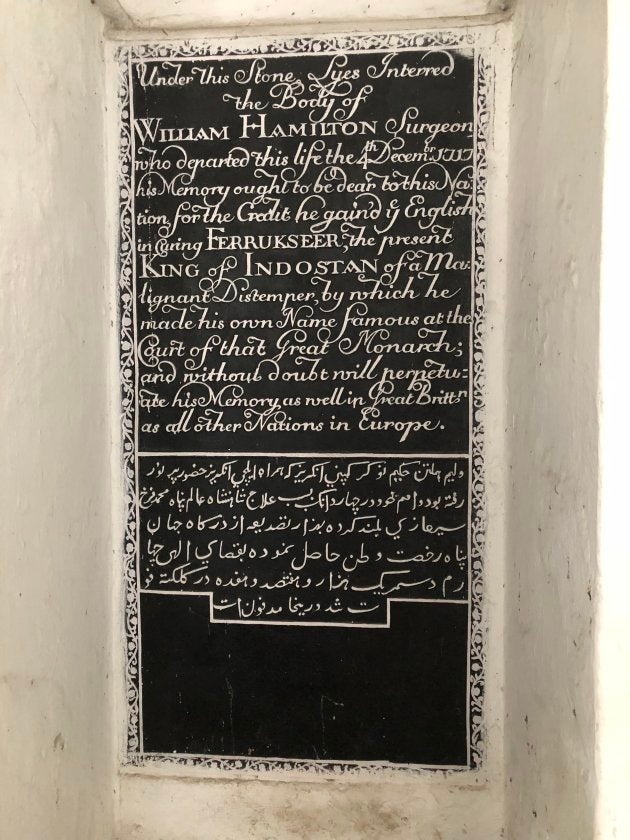 Under this Stone Lyes Interred
the Body of
WILLIAM HAMILTON Surgeon
who departed this life the 4th Decembr. 1717
his Memory ought to be dear to this Na-
tion, for the Credit he gain'd ye English
in Curing FERRUKSEER, the present
KING of INDOSTAN of a Ma-
lignant Distemper, by which he
made his own Name famous at the
Court of that Great Monarch;
and without doubt will perpetu-
ate his Memory, as well in Great Brittn
as all other Nations in Europe.
وليم حملتن حكيم نوكر كمپني انگريز كه همراه ايلچي انگريز حضور پر نور
رفته بود و اسم خود در چهار دانگ بسبب علاج شاهنشاه عالم پناه محمد فرخ
سير غازي بلند كرده بهزار تصديعه از درگاه جهان
پناه رخصت وطن حاصل نموده بقضاي الهي چها
رم دسمبر يك هزار و هفتصد و هفده در كلكته فو
ت شد در ينجا مدفون است